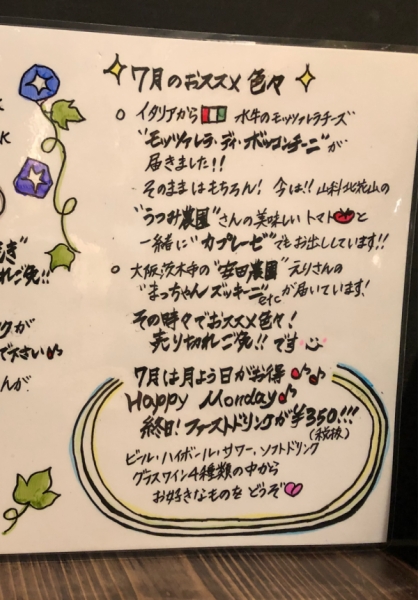 7月のおススメ色々
○ イタリアから 水牛のモッツァレラチーズ
"モッツァレラ・ディ・ボッコンチーニ"が
届きました!!
そのままはもちろん! 今は!! 山科北花山の
"うつみ農園"さんの美味しいトマトと
一緒に"カプレーゼ"でもお出ししています!!
○ 大阪、茨木寺の"幸田農園"えりさんの
"まっちゃんズッキーニ"etcが届いています!
その時々でおススメ色々!
売り切れご免!!です
7月は月よう日がお得♪♪
Happy Monday♪
終日!ファーストドリンクが¥350!!!
(税抜)
ビール・ハイボール・サワー、ソフトドリンク
グラスワイン4種類の中から
お好きなものをどうぞ♡
K
K
き"
れご免!!
クが
で下さい♪
んが